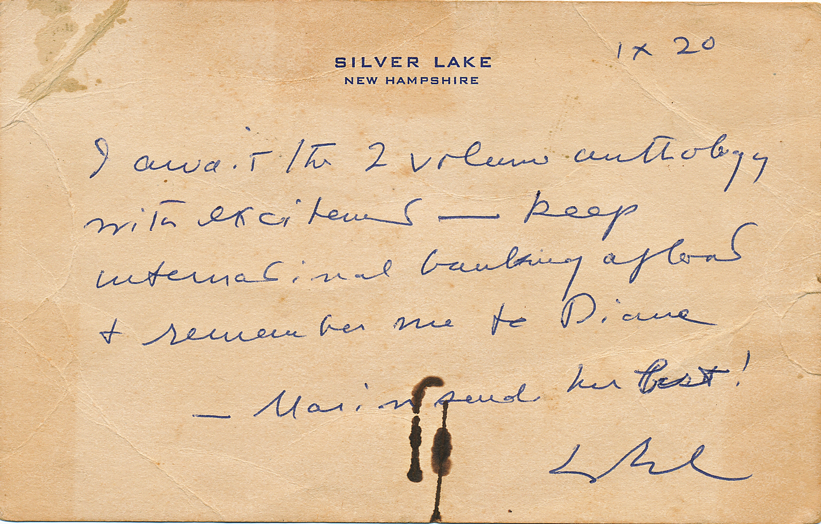 SILVER LAKE
NEW HAMPSHIRE
ix 20
I await the 2 volume anthology
with excitement — keep
international banking afloat
+ remember me to Diane
— Marion sends her best!